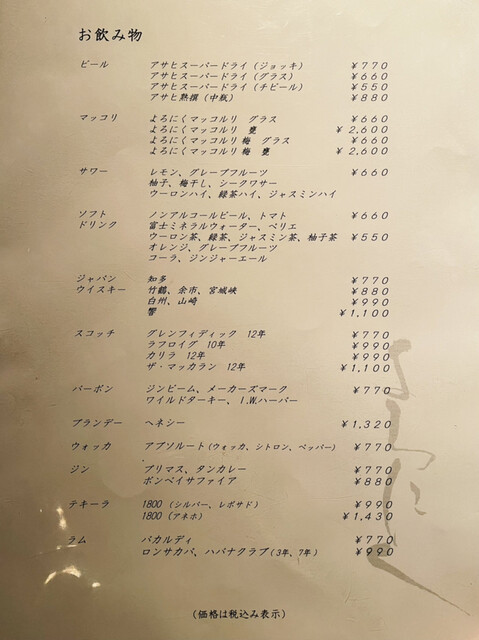 お飲み物
ビール アサヒスーパードライ(ジョッキ) ¥770
アサヒスーパードライ(グラス) ¥660
アサヒスーパードライ(チビール) ¥550
アサヒ熟撰(中瓶) ¥880
マッコリ よろにくマッコルリ グラス ¥660
よろにくマッコルリ 甕 ¥2,600
よろにくマッコルリ梅 グラス ¥660
よろにくマッコルリ梅 甕 ¥2,600
サワー レモン、グレープフルーツ ¥660
柚子、梅干し、シークワサー
ウーロンハイ、緑茶ハイ、ジャスミンハイ
ソフト ノンアルコールビール、トマト ¥660
ドリンク 富士ミネラルウォーター、ペリエ
ウーロン茶、緑茶、ジャスミン茶、柚子茶 ¥550
オレンジ、グレープフルーツ
コーラ、ジンジャーエール
ジャパン 知多 ¥770
ウイスキー 竹鶴、余市、宮城峡 ¥880
白州、山崎 ¥990
響 ¥1,100
スコッチ グレンフィディック 12年 ¥770
ラフロイグ 10年 ¥990
カリラ 12年 ¥990
ザ・マッカラン 12年 ¥1,100
バーボン ジンビーム、メーカーズマーク ¥770
ワイルドターキー、I.W.ハーパー
ブランデー ヘネシー ¥1,320
ウォッカ アブソルート(ウォッカ、シトロン、ペッパー) ¥770
ジン プリマス、タンカレー ¥770
ボンベイサファイア ¥880
テキーラ 1800 (シルバー、レポサド) ¥990
1800 (アネホ) ¥1,430
ラム バカルディ ¥770
ロンサカパ、ハバナクラブ(3年、7年) ¥990
よろにく
(価格は税込み表示)